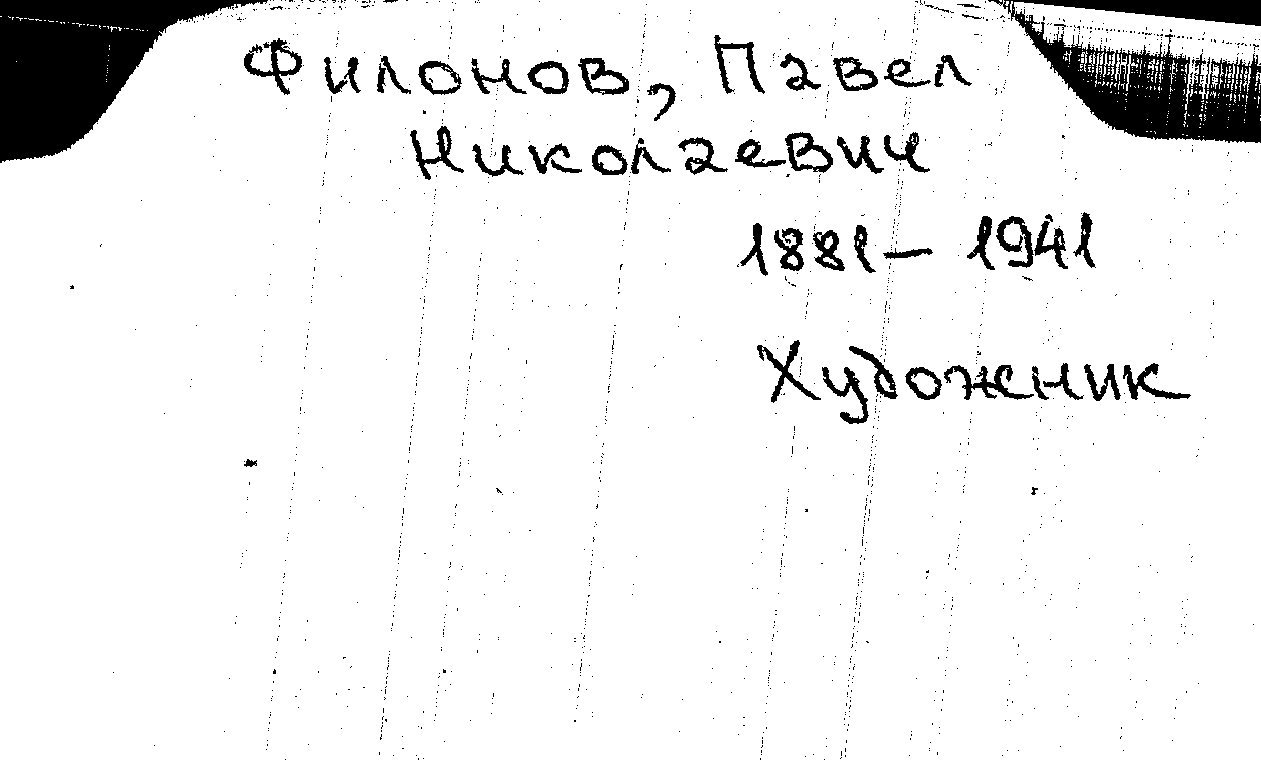 Филонов, Павел
Николаевич
1881 – 1941
Художник